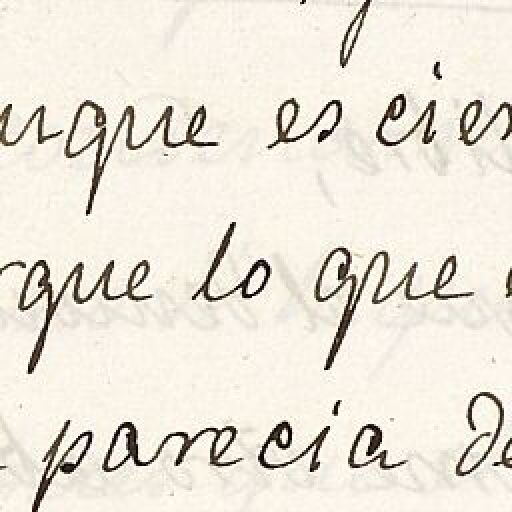 urque es cier
rque lo que
parecia de